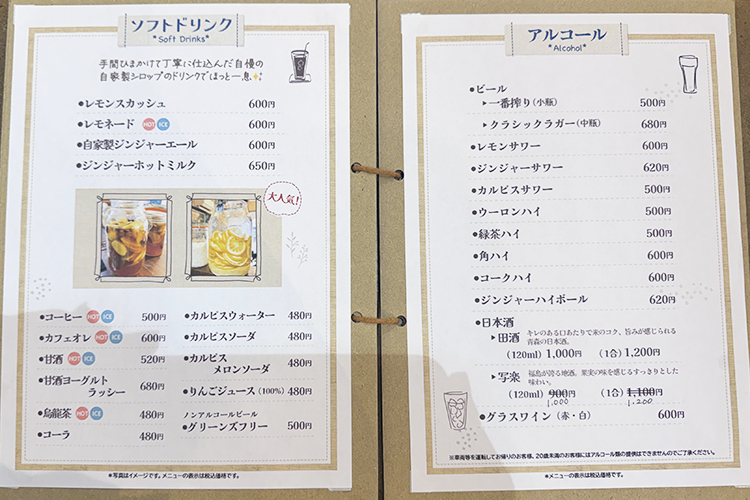 ソフトドリンク
*Soft Drinks*
手間ひまかけて丁寧に仕込んだ自慢の
自家製シロップのドリンクでほっと一息
●レモンスカッシュ 600円
●レモネード HOT ICE 600円
●自家製ジンジャーエール 600円
●ジンジャーホットミルク 650円
大人気!
●コーヒー HOT ICE 500円
●カフェオレ HOT ICE 600円
●甘酒 HOT ICE 520円
●甘酒ヨーグルト
ラッシー 680円
●烏龍茶 HOT ICE 480円
●コーラ 480円
●カルピスウォーター 480円
●カルピスソーダ 480円
●カルピス
メロンソーダ 480円
●りんごジュース(100%) 480円
ノンアルコールビール
●グリーンズフリー 500円
*写真はイメージです。メニューの表示は税込価格です。
アルコール
*Alcohol*
●ビール
▶一番搾り(小瓶) 500円
▶クラシックラガー(中瓶) 680円
●レモンサワー 600円
●ジンジャーサワー 620円
●カルピスサワー 500円
●ウーロンハイ 500円
●緑茶ハイ 500円
●角ハイ 600円
●コークハイ 600円
●ジンジャーハイボール 620円
●日本酒
▶田酒 キレのある口あたりで米のコク、旨みが感じられる
青森の日本酒。
(120ml) 1,000円 (1合) 1,200円
▶写楽 福島が誇る地酒。果実の味を感じるすっきりとした
味わい。
(120ml) 900円 (1合) 1,100円
1,000 1,200
●グラスワイン(赤・白) 600円
※車両等を運転してお帰りのお客様、20歳未満のお客様にはアルコール類の提供はできませんのでご了承ください。
*メニューの表示は税込価格です。